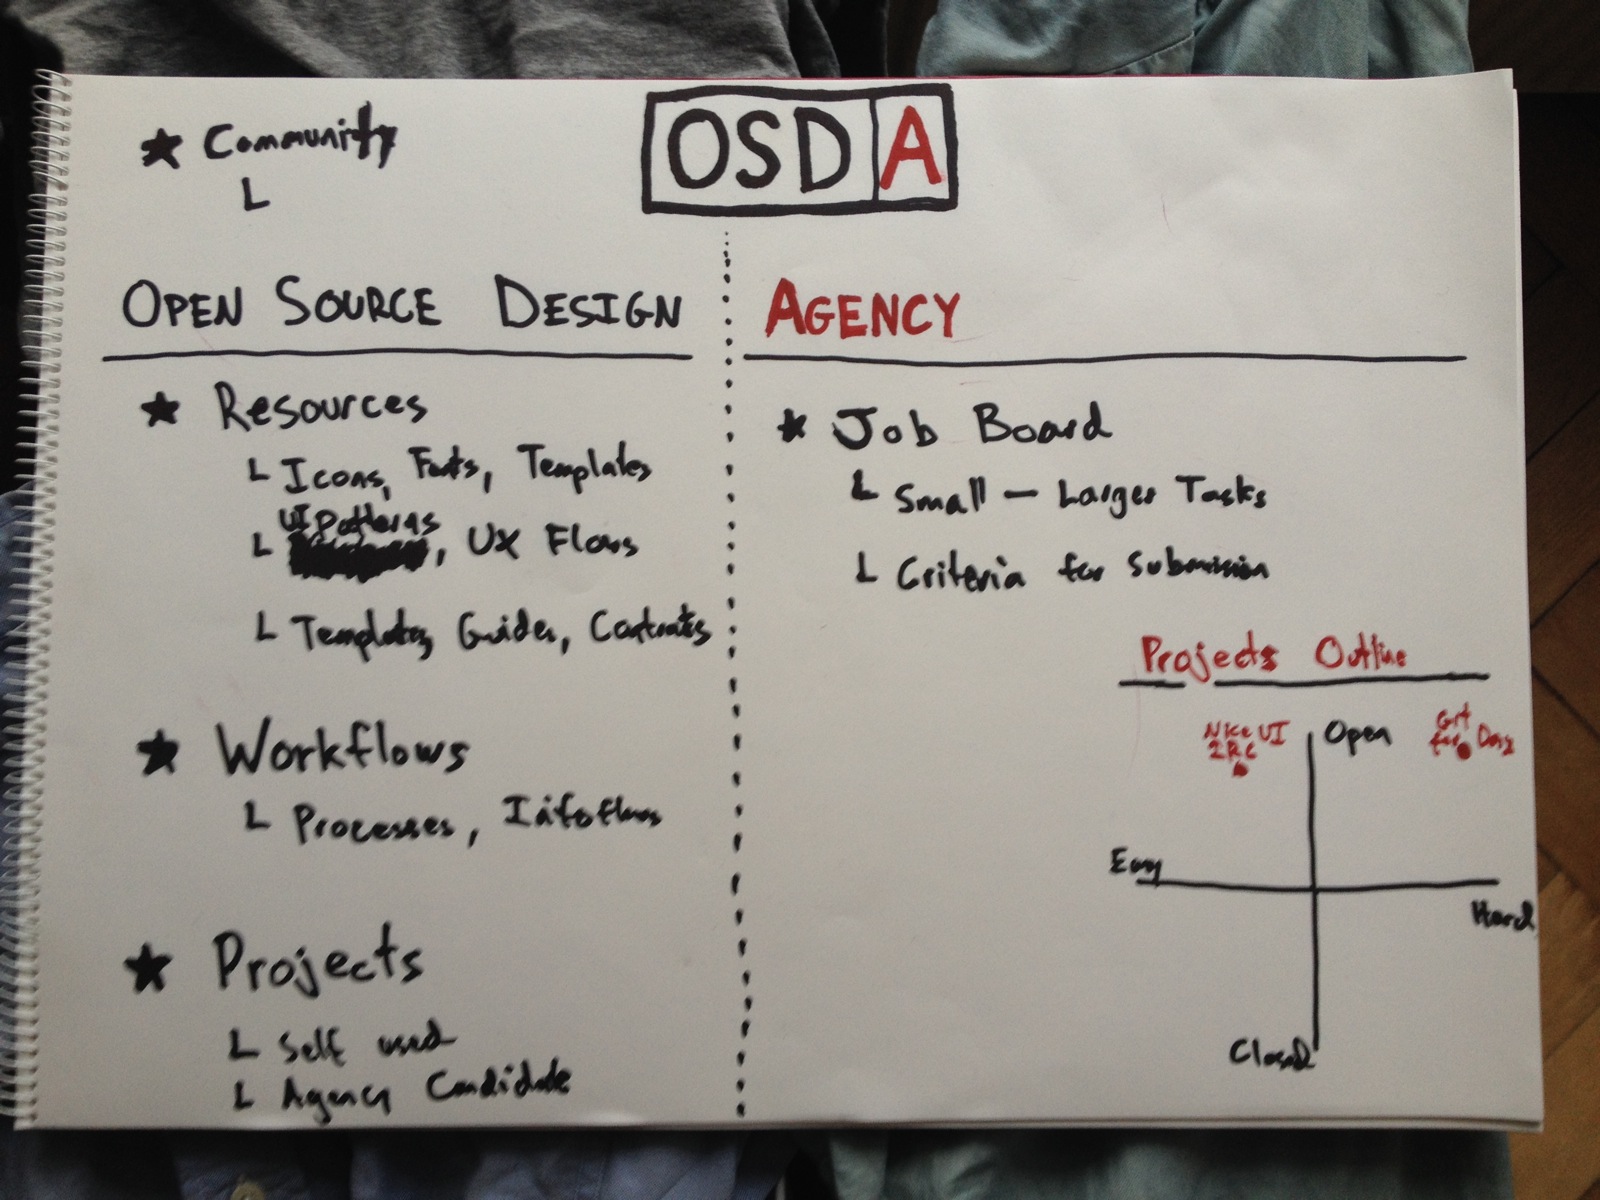 Community
OSDA
OPEN SOURCE DESIGN
Resources
Icons, Fonts, Templates
UI Patterns
, UX Flows
Templates, Guides, Contracts
Workflows
Processes, Infoflows
Projects
Self used
Agency Candidate
AGENCY
Job Board
Small – Larger Tasks
Criteria for Submission
Projects Outline
Nice UI
Open
for Day
Easy
Hard
Closed